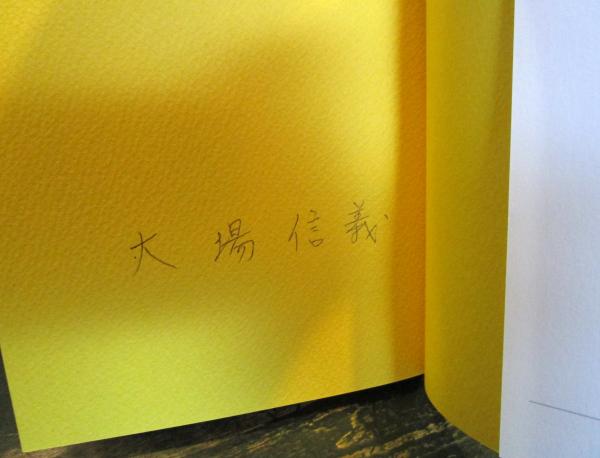 大場信義